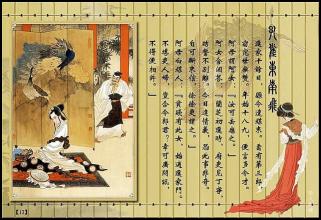 孔雀東南飛
還家十餘日，縣令遣媒來。云有第三郎，
窈窕世無雙。年始十八九，便言多令才。
阿母謂阿女：「汝可去應之。」
阿女含淚答：「蘭芝初還時，府吏見丁寧，
結誓不別離。今日違情義，恐此事非奇。
自可斷來信，徐徐更謂之。」
阿母白媒人：「貧賤有此女，始適還家門。
不堪吏人婦，豈合令郎君？幸可廣問訊，
不得便相許。」